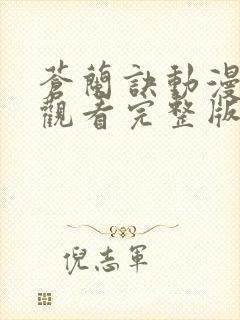 蒼蘭訣動漫
觀看完整版
倪志軍